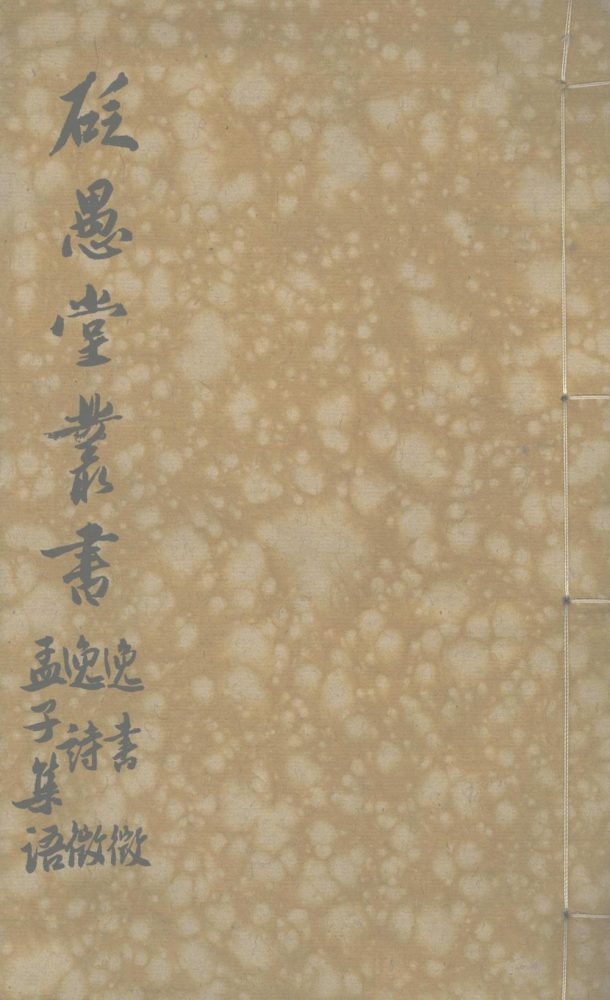 砭愚堂叢書
逸書徵
逸詩徵
孟子集語